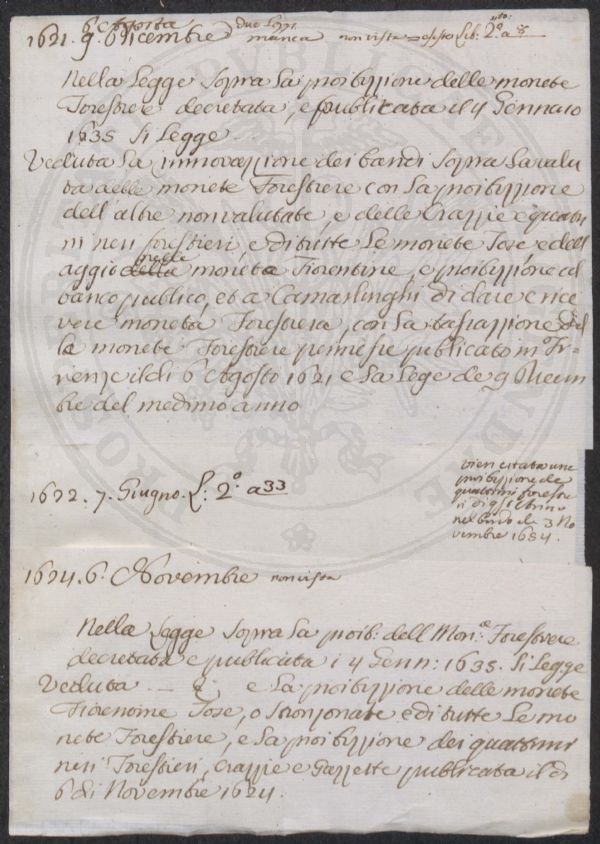 6 Agosto due Leggi
1621. 9. Dicembre manca non vista Lib: 2.º a 8
Nella Legge Sopra la proibizione delle monete
Forestiere decretata, e publicata il 4 Gennaio
1635 Si Legge
Veduta la innovazzione dei bandi Sopra la valu
ta delle monete Forestiere con la proibizione
dell'altre non valutate, e delle Crazzie e quatri
ni neri forestieri, e di tutte Le monete Tose e dell
aggio della moneta Fiorentine, e proibizione al
banco publico, et a Camarlinghi di dare e rice
vere moneta Forestiera, con la tassazzione del
la monete Forestiere permesse publicato in Fi-
renze il di 6 Agosto 1621 e la Lege de 9 Dicem
bre del medimo anno
1622. 7. Giugno. L: 2.º a 33
vien citata una
proibizione de
quattrini forestie
ri di
nel bando de 3 No
vembre 1684.
1624. 6. Novembre non vista
Nella Legge Sopra la proib: dell Mon.e Forestiere
decretata e publicata i 4 Genn: 1635. Si Legge
Veduta e la proibizione delle monete
Fiorentine Tose, o Stronzonate e di tutte Le mo
nete Forestiere, e la proibizione dei quattrini
neri Forestieri, Crazzie e Gazzette publicata il di
6 di Novembre 1624.
PUBLICA